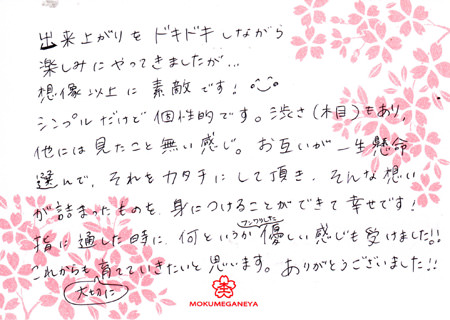 出来上がりをドキドキしながら
楽しみにやってきましたが…
想像以上に素敵です!
シンプルだけど個性的です。渋さ(木目)もあり、
他には見たこと無い感じ。お互いが一生懸命
選んで、それをカタチにして頂き、そんな想い
が詰まったものを、身につけることができて幸せです!
フンワリした
指に通した時に、何というか優しい感じも受けました!!
これからも育てていきたいと思います。ありがとうございました!!
大切に
MOKUMEGANEYA